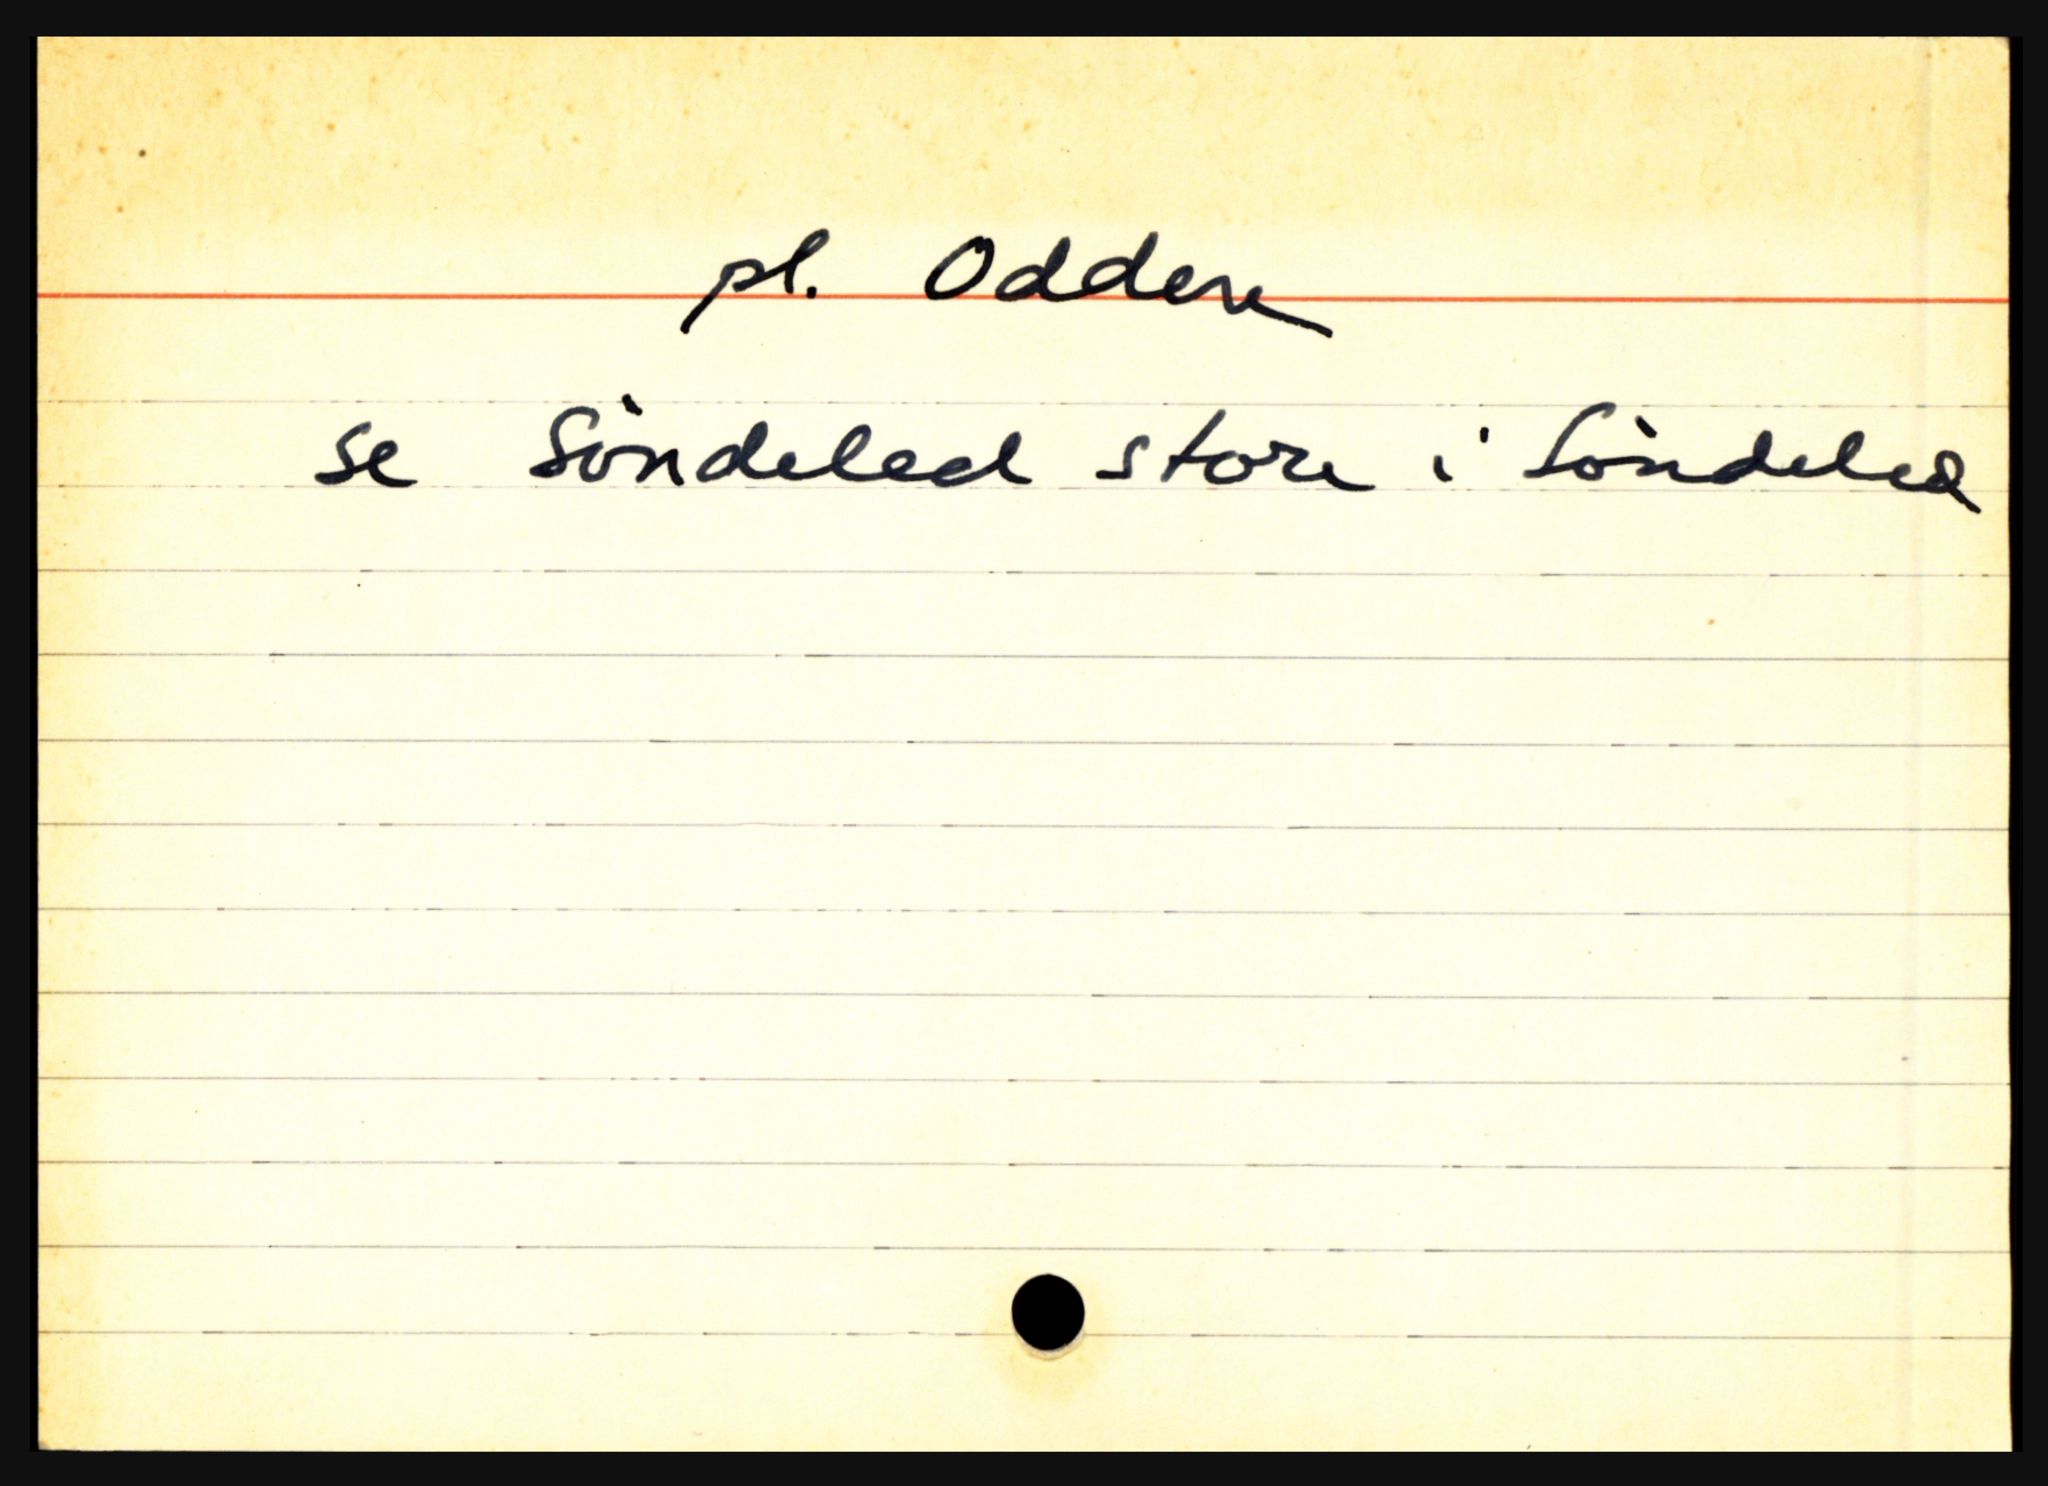 pl. Odden
se Søndeled store i Søndeled